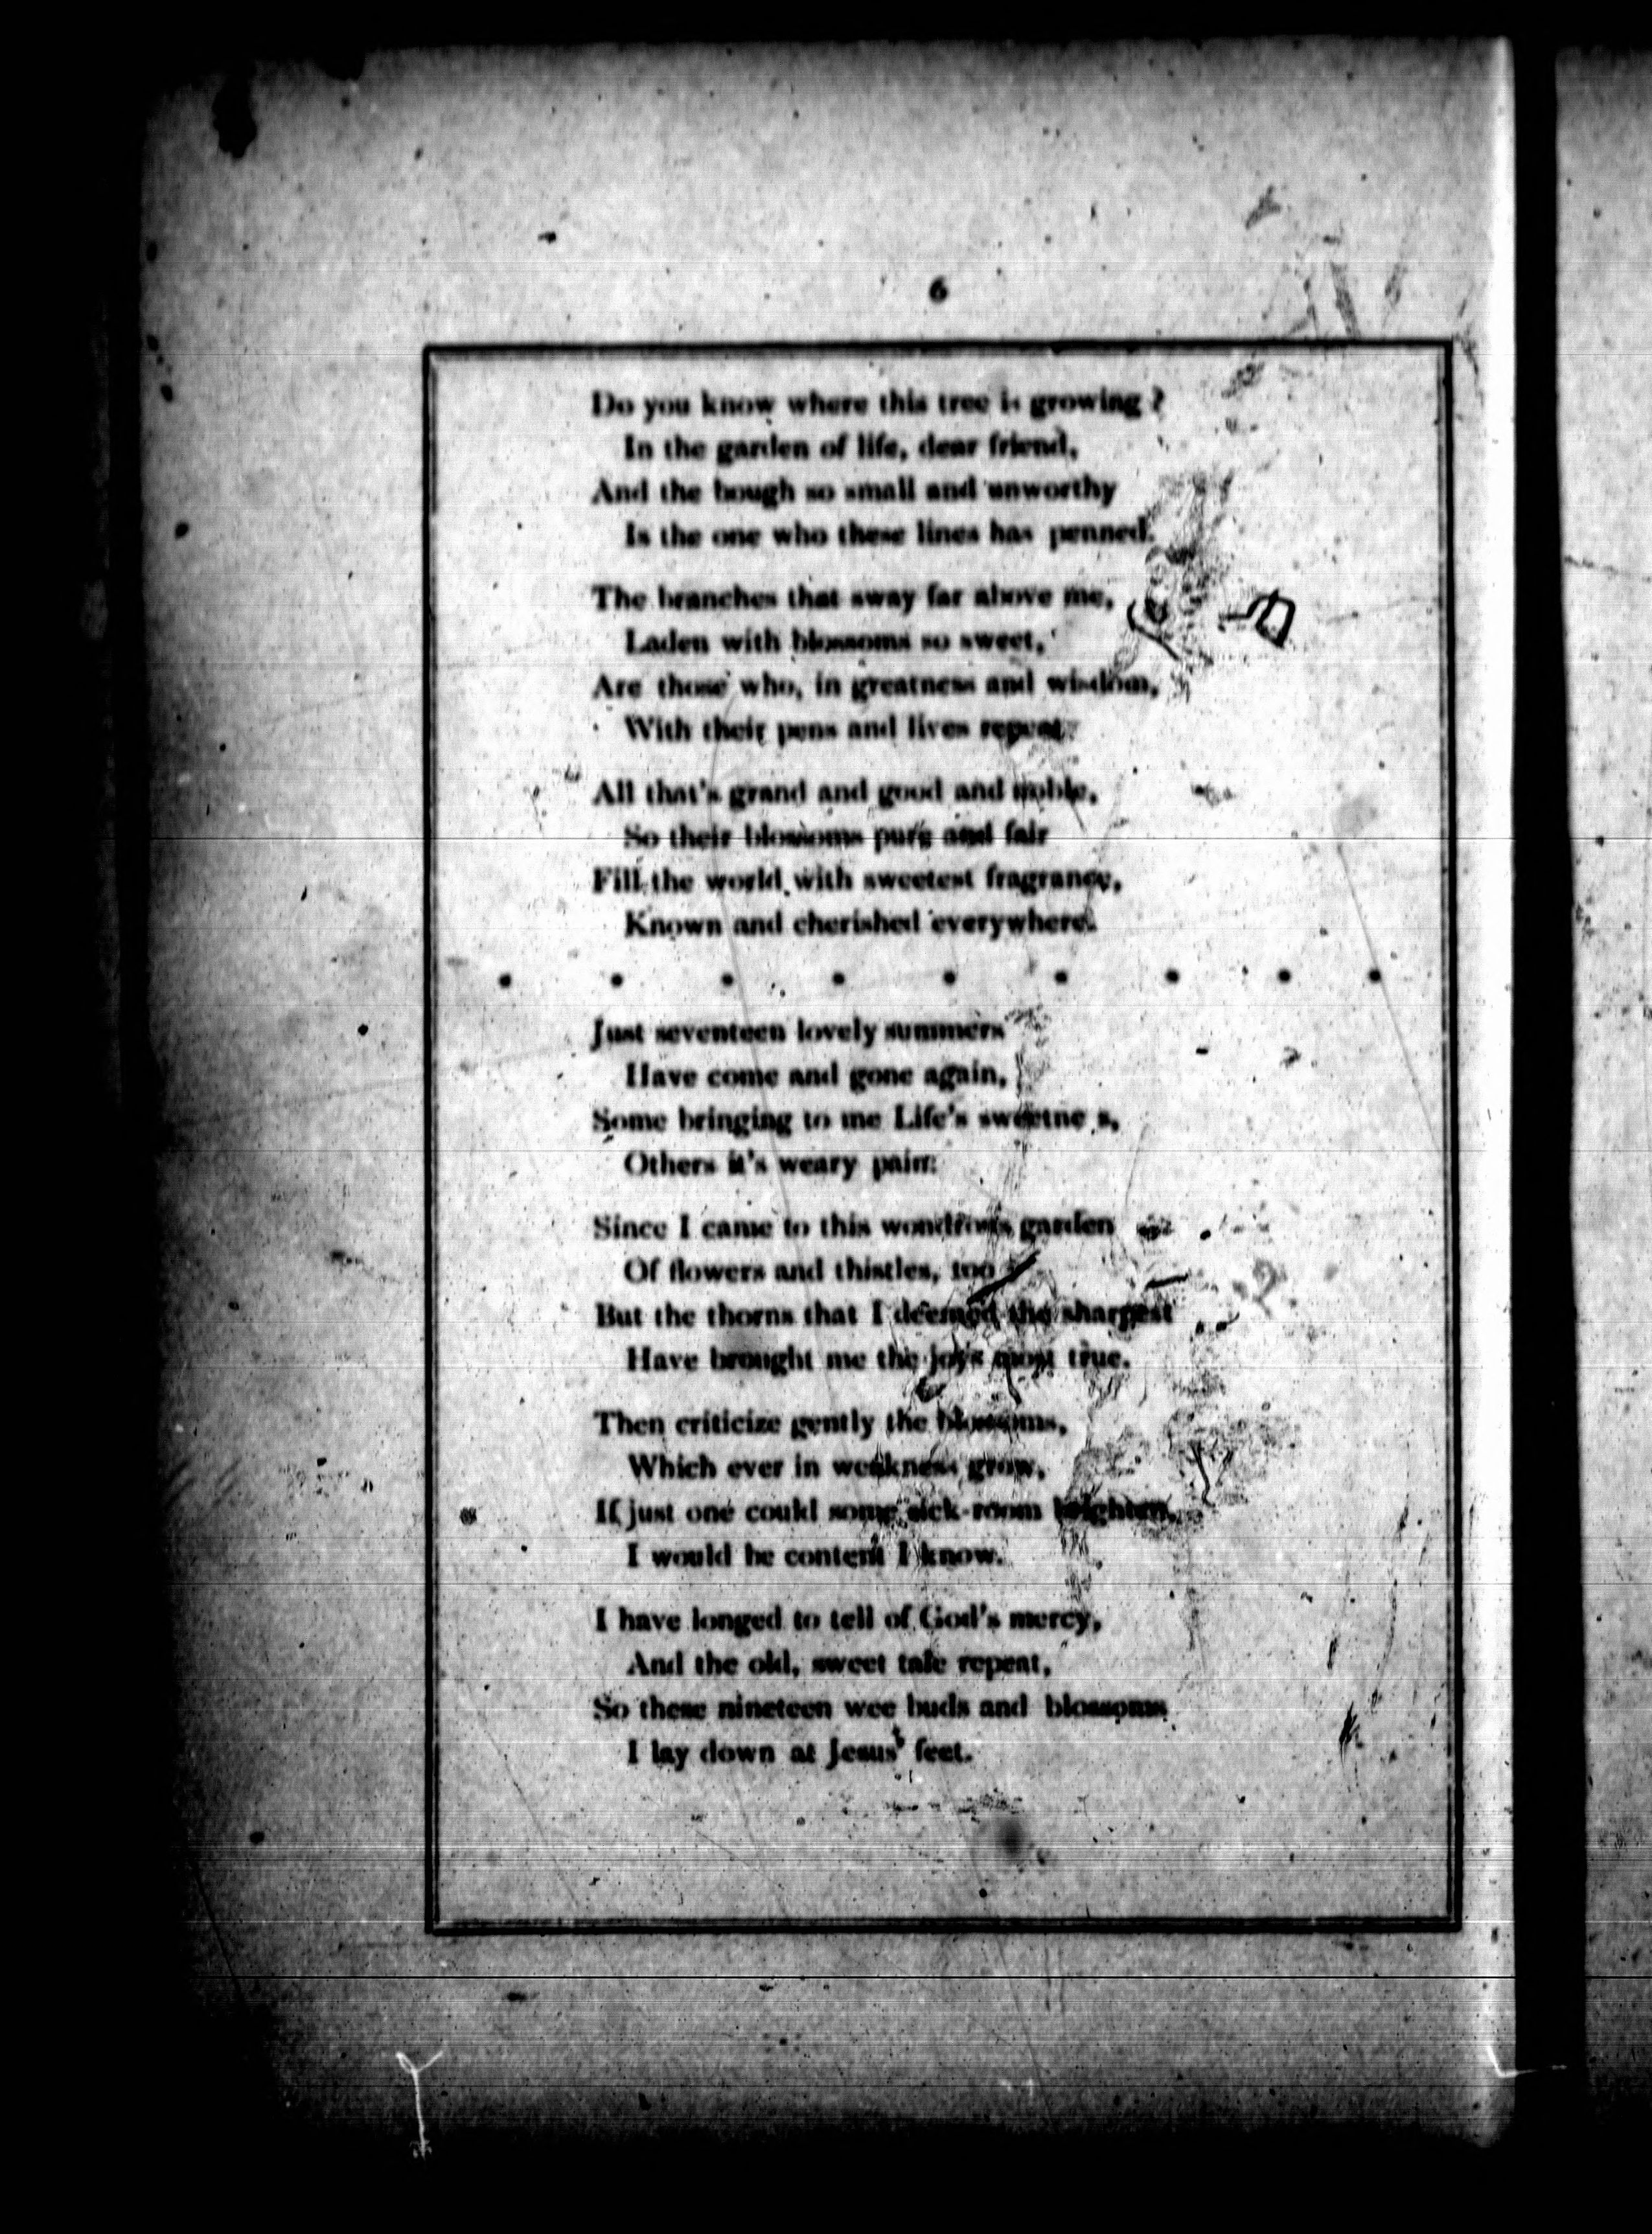 6
Do you know where this tree is growing?
In the garden of life, dear friend,
And the bough so small and unworthy
Is the one who these lines has penned.
The branches that sway far above me,
Laden with blossoms so sweet,
Are those who, in greatness and wisdom,
With their pens and lives repeat
All that's grand and good and noble,
So their blossoms pure and fair
Fill the world with sweetest fragrance,
Known and cherished everywhere.
Just seventeen lovely summers
Have come and gone again,
Some bringing to me Life's sweetne s,
Others it's weary pain:
Since I came to this wondrous garden
Of flowers and thistles, too
But the thorns that I deemed the sharpest
Have brought me the joys most true.
Then criticize gently the blossoms,
Which ever in weakness grow,
If just one could some sick-room brighten,
I would be content I know.
I have longed to tell of God's mercy,
And the old, sweet tale repeat,
So these nineteen wee buds and blossoms
I lay down at Jesus' feet.